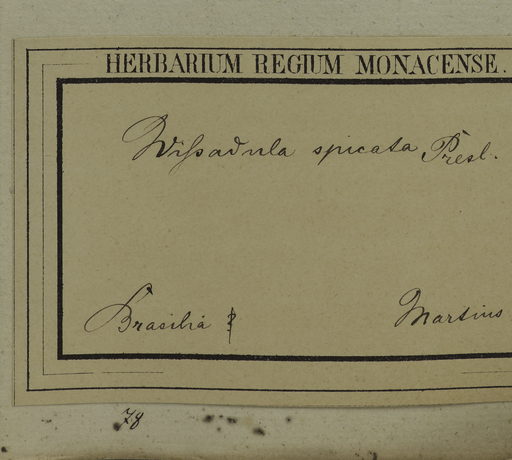 HERBARIUM REGIUM MONACENSE.
Wissadula spicata Presl.
Brasilia
Martius
78